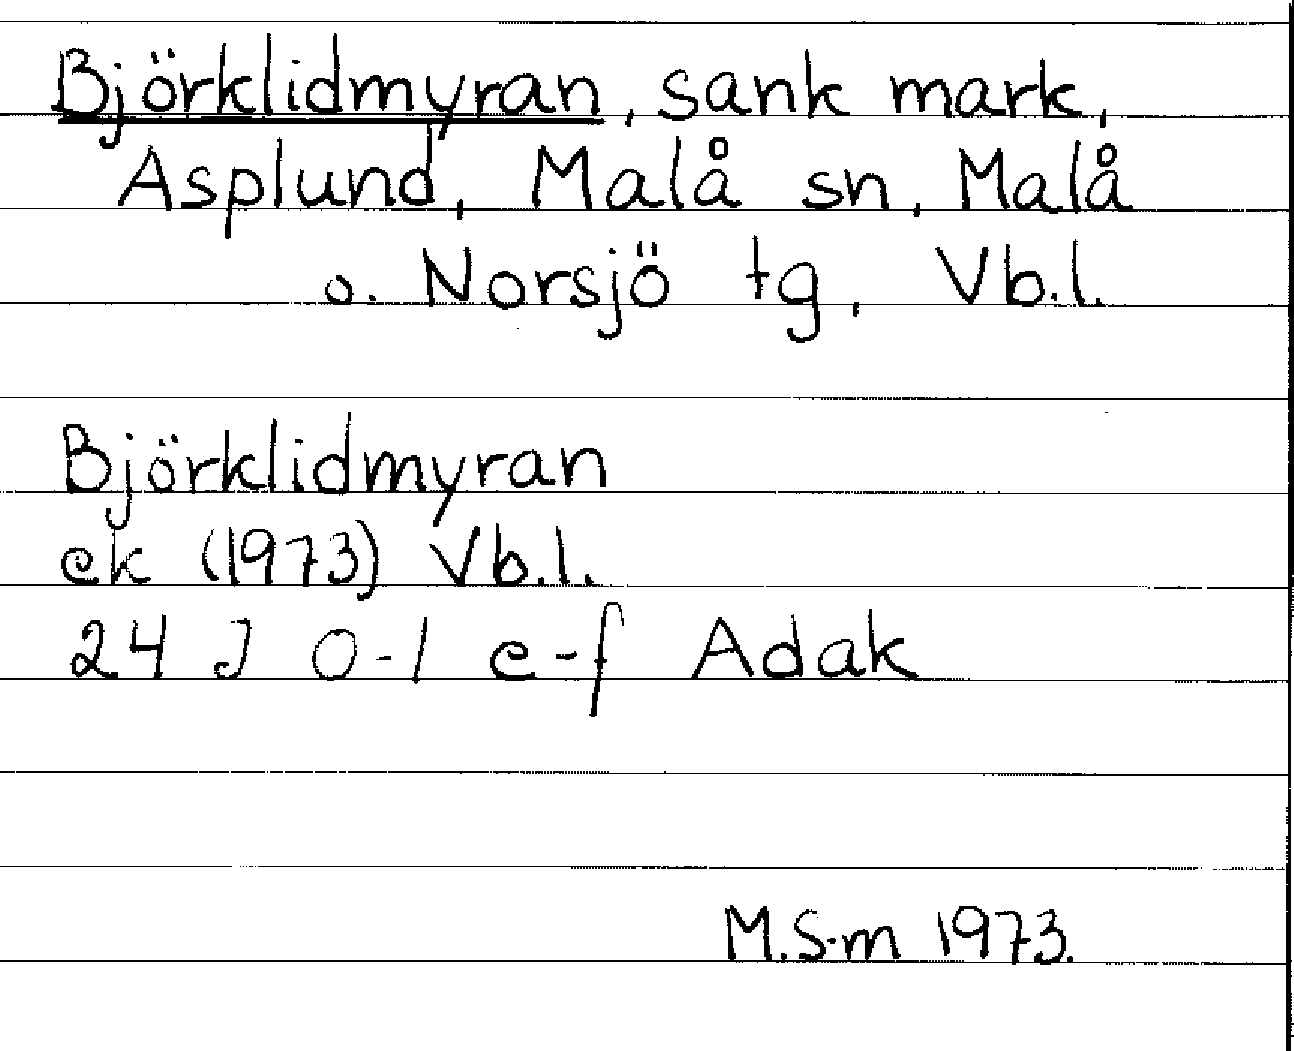 Björklidmyran, sank mark,
Asplund, Malå sn, Malå
o. Norsjö tg, Vb.l.
Björklidmyran
ek (1973) Vb.l.
24 J 0-1 e-f Adak
M.S-m 1973.